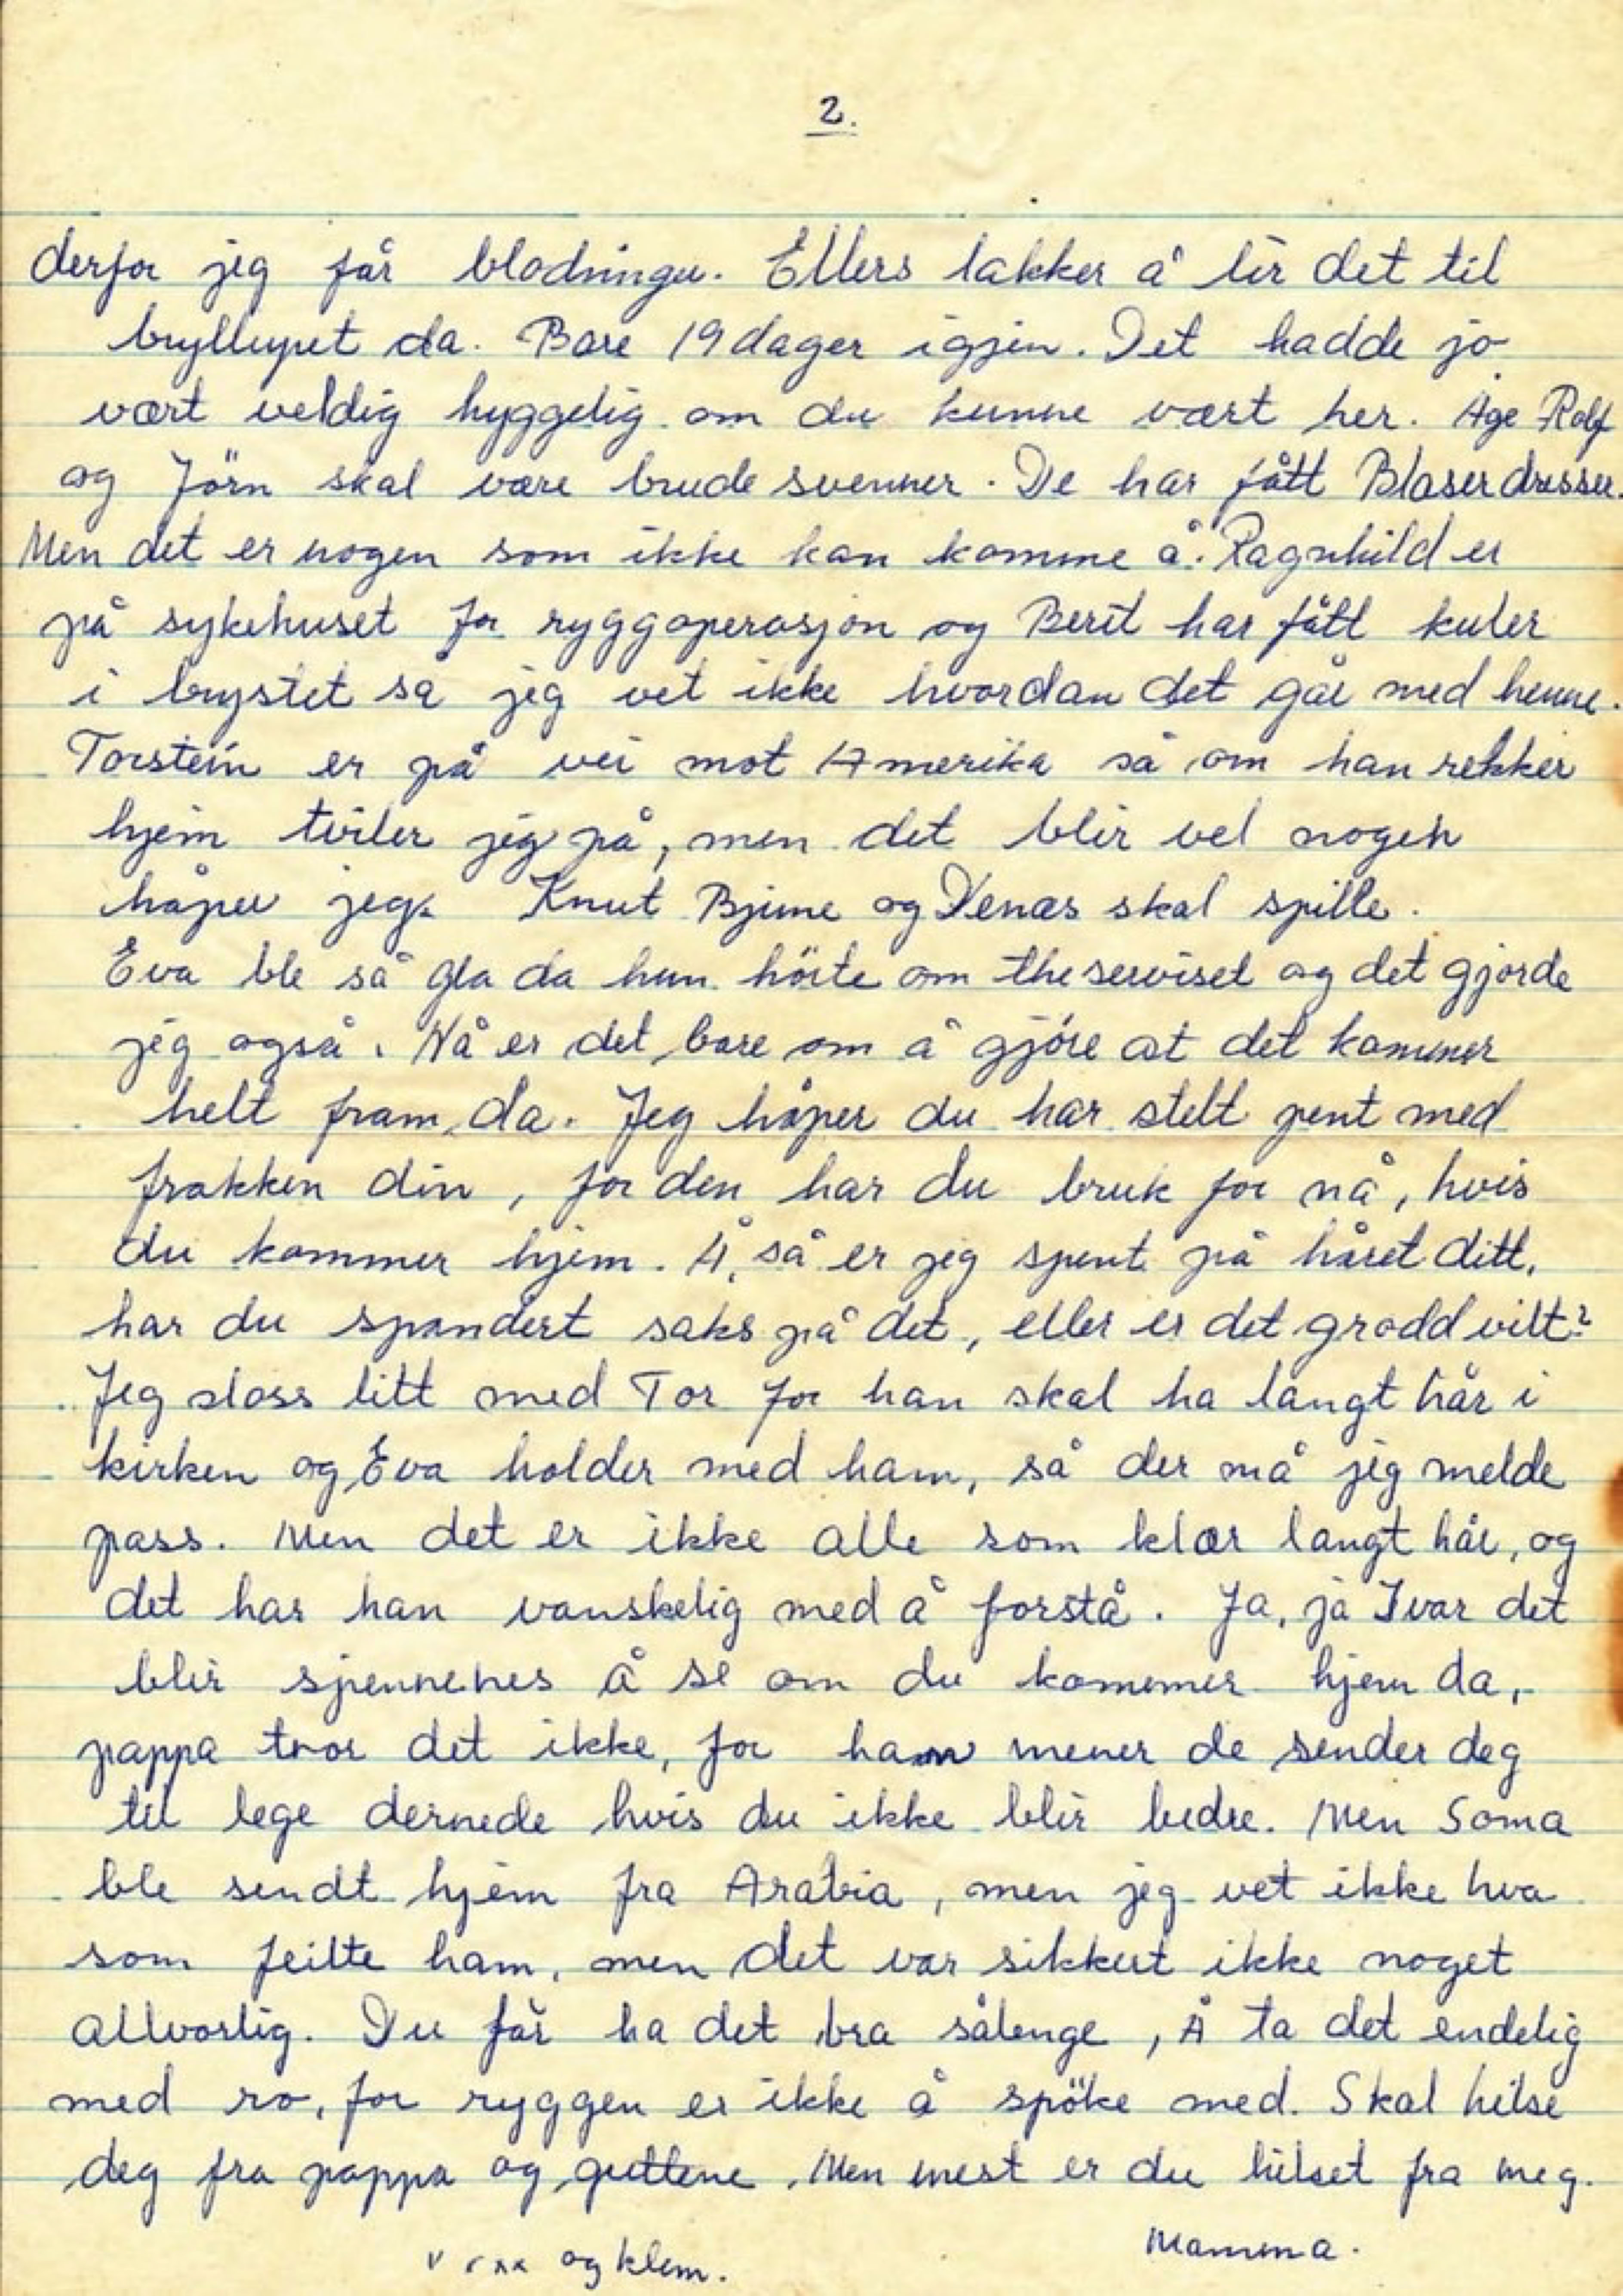 2.
derfor jeg får blødninger. Ellers lakker å lir det til
bryllupet da. Bare 19 dager igjen. Det hadde jo
vært veldig hyggelig om du kunne vært her. Åge Rolf
og Jörn skal være brude svenner. De har fått Blaser dresser.
Men det er nogen som ikke kan komme å. Ragnhild er
på sykehuset for ryggoperasjon og Berit har fått kuler
i brystet så jeg vet ikke hvordan det går med henne.
Torstein er på vei mot Amerika så om han rekker
hjem tviler jeg på, men det blir vel nogen
håper jeg. Knut Bjime og Venås skal spille.
Eva ble så gla da hun hörte om theserviset og det gjorde
jeg også. Nå er det bare om å gjöre at det kommer
helt fram da. Jeg håper du har stelt pent med
frakken din, for den har du bruk for nå, hvis
du kommer hjem. Å, så er jeg spent på håret ditt,
har du spandert saks på det, eller er det grodd vilt?
Jeg sloss litt med Tor for han skal ha langt hår i
kirken og Eva holder med ham, så der må jeg melde
pass. Men det er ikke alle som klær langt hår, og
det har han vanskelig med å forstå. Ja, ja Ivar det
blir spennenes å se om du kommer hjem da,
pappa tror det ikke, for han mener de sender deg
til lege dernede hvis du ikke blir bedre. Men Soma
ble sendt hjem fra Arabia, men jeg vet ikke hva
som feilte ham, men det var sikkert ikke noget
allvorlig. Du får ha det bra sålenge, Å ta det endelig
med ro, for ryggen er ikke å spöke med. Skal hilse
deg fra pappa og guttene. Men mest er du hilset fra meg.
og klem. Mamma.